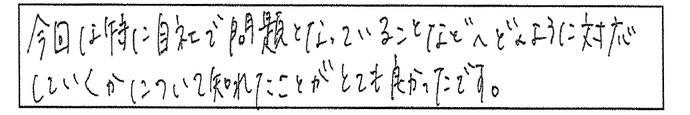 今回は特に自社で問題となっていることなどへどのように対応
していくかについて知れたことがとても良かったです。